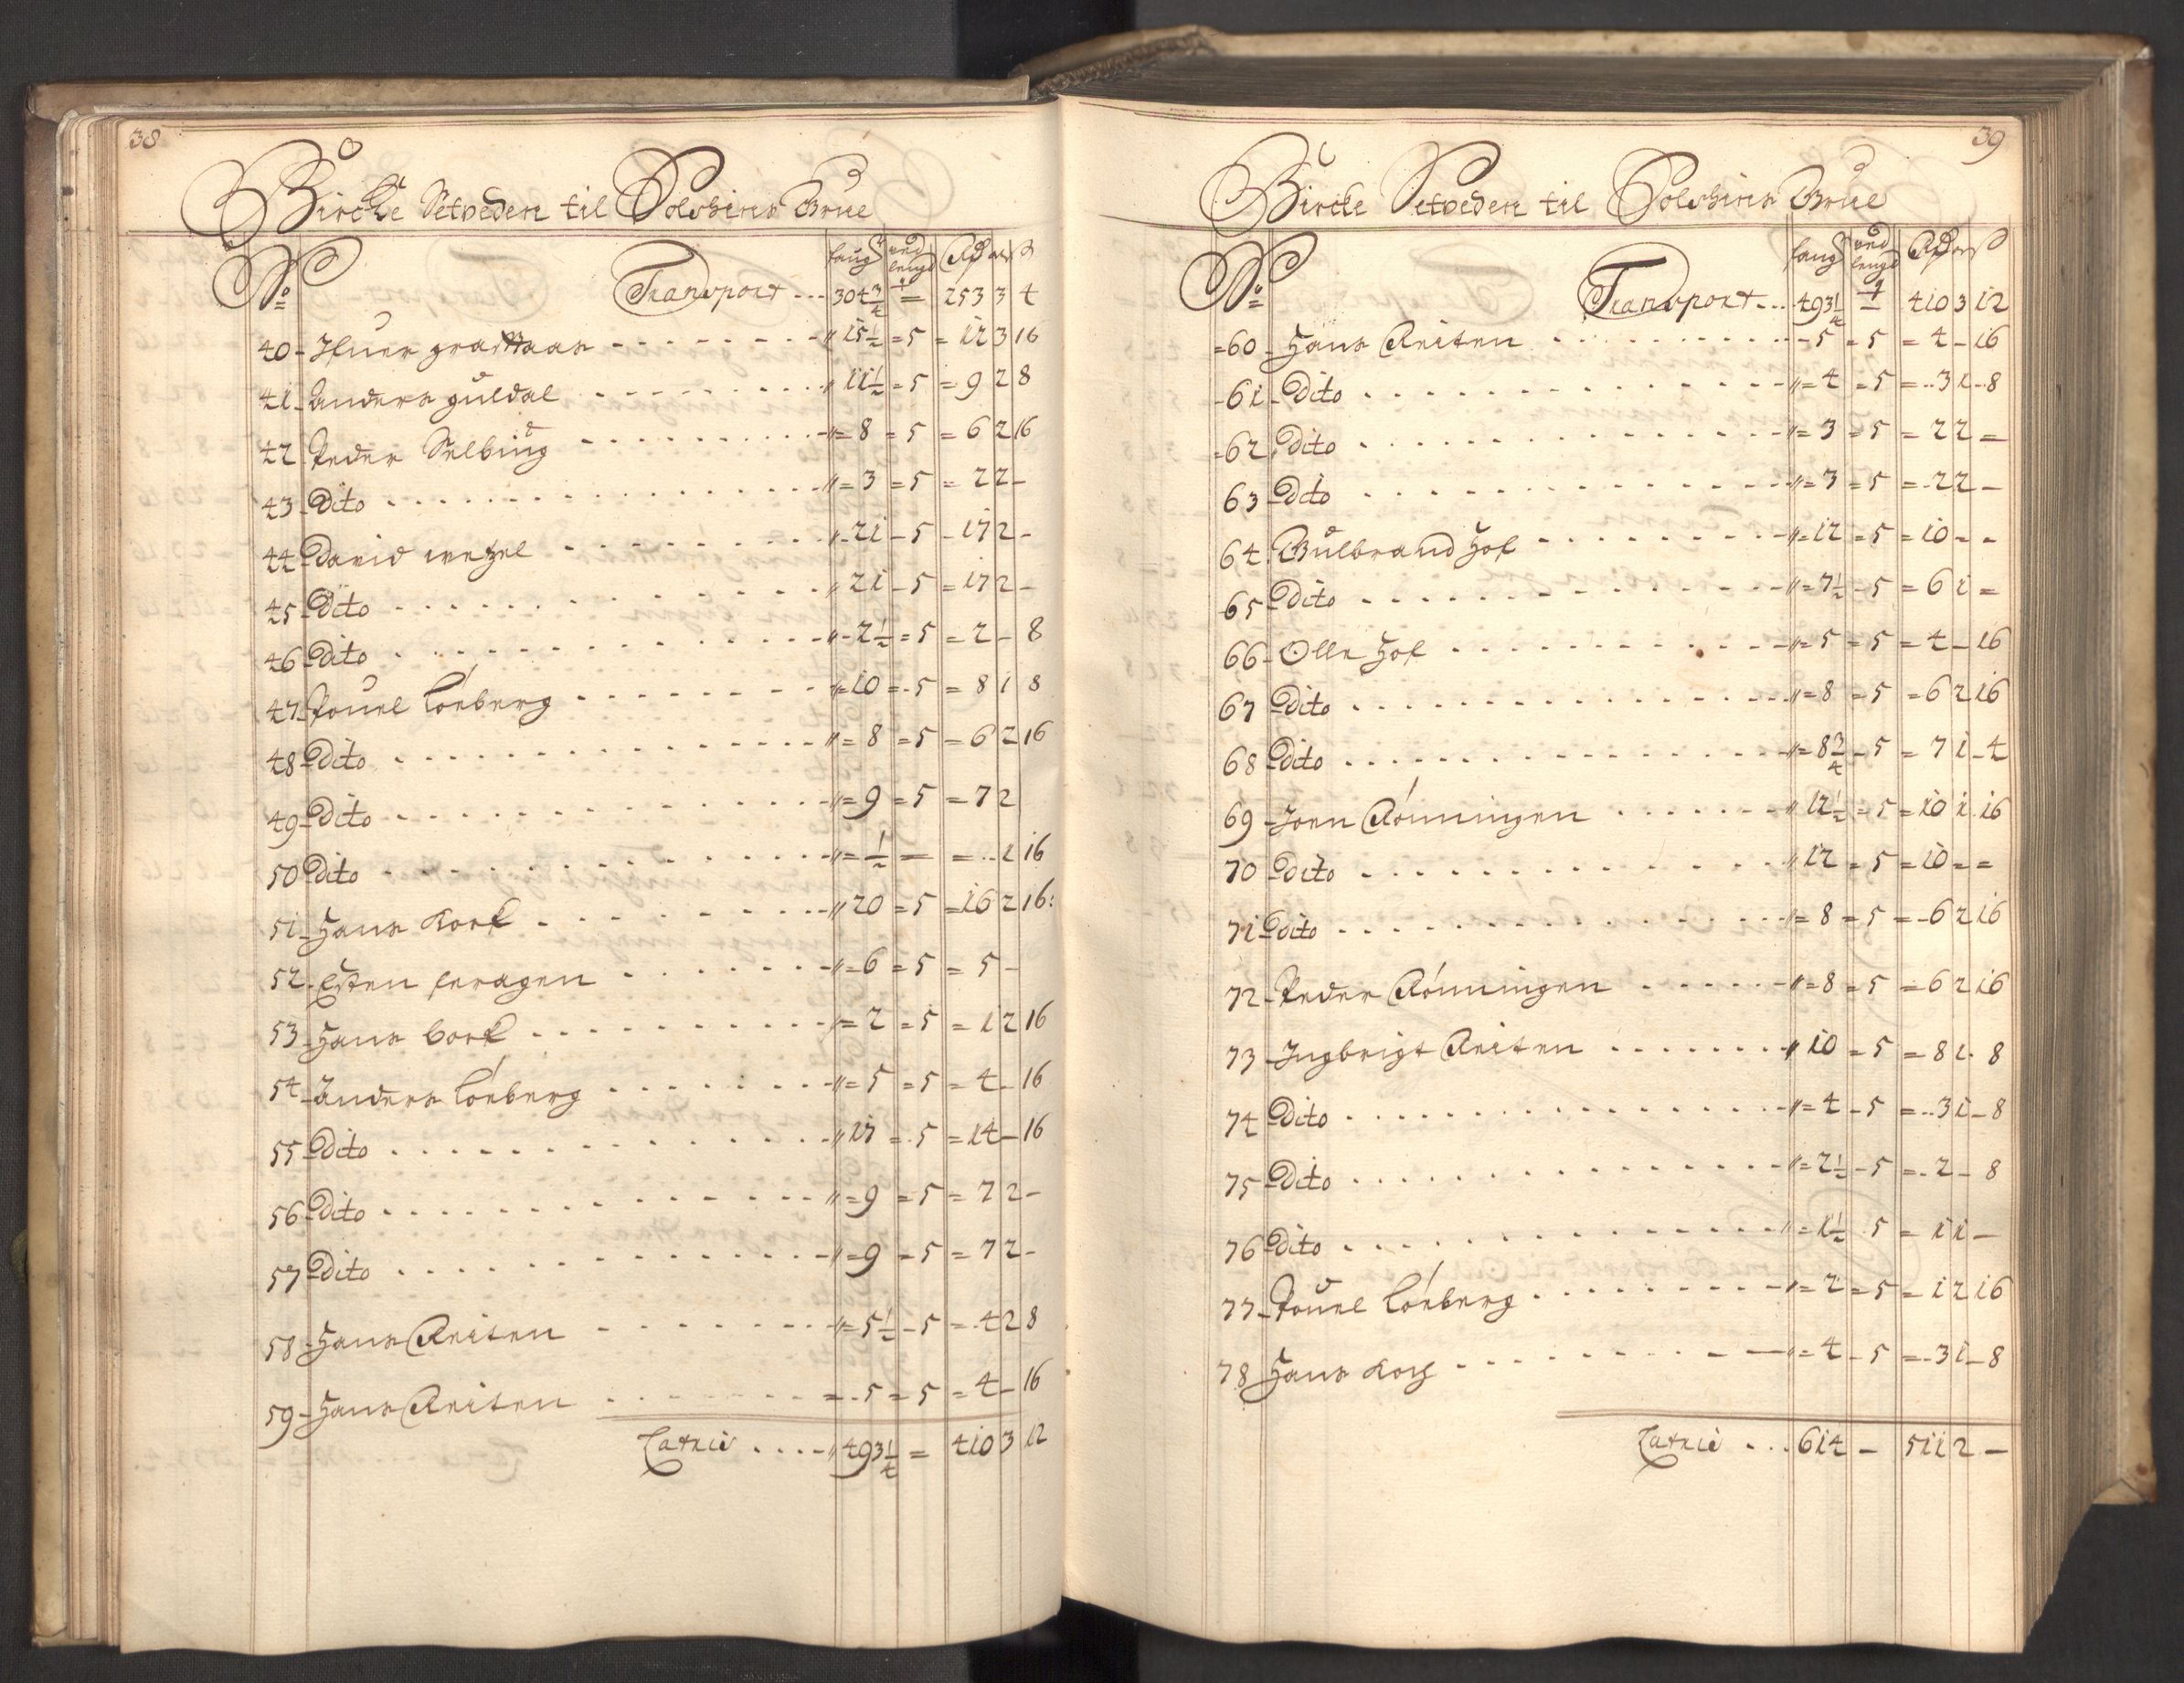 38
Bircke Setveden til Solskins Grue
No favg ved lengd Rd ort s
Transport --- 304 3/4 = 253 3 4
40 - Ifuer graattaas -------- 15 1/2 = 5 = 12 3 16
41 - Anders guldal -------- 11 1/2 = 5 = 9 2 8
42 Peder Selbing -------- 8 = 5 = 6 2 16
43 - Dito -------- 3 = 5 = 2 2 -
44 - David wezel -------- 21 - 5 - 17 2 -
45 - Dito -------- 21 - 5 = 17 2 -
46 - Dito -------- 2 1/2 = 5 = 2 - 8
47 - Pouel Lønberg -------- 10 = 5 = 8 1 8
48 - Dito -------- 8 = 5 = 6 2 16
49 - Dito -------- 9 = 5 = 7 2
50 Dito -------- 1/2 = = 1 16
51 - Hans Kork -------- 20 = 5 = 16 2 16:
52 - Esten feragen -------- 6 = 5 = 5 -
53 - Hans Cork -------- 2 = 5 = 1 2 16
54 - Anders Lønberg -------- 5 = 5 = 4 - 16
55 - Dito -------- 17 = 5 = 14 - 16
56 - Dito -------- 9 = 5 = 7 2 -
57 - Dito -------- 9 = 5 = 7 2 -
58 - Hans Reiten -------- 5 1/2 - 5 = 4 2 8
59 - Hans Reiten -------- 5 = 5 = 4 - 16
Latrie .... 493 1/4 = 410 3 12
39
Bircke Setveden til Solskins Grue
No favg ved lengd Rd ort s
Transport --- 493 1/4 410 3 12
60 - Hans Reiten -------- 5 = 5 = 4 - 16
61 - Dito -------- 4 = 5 = 3 1 - 8
62 - Dito -------- 3 = 5 = 2 2 =
63 - Dito -------- 3 = 5 = 2 2 -
64 - Gulbrand Hof -------- 12 = 5 = 10 - -
65 - Dito -------- 7 1/2 - 5 = 6 1 =
66 - Olle Hof -------- 5 = 5 = 4 - 16
67 - Dito -------- 8 = 5 = 6 2 16
68 - Dito -------- 8 3/4 - 5 = 7 1 - 4
69 - Joen Rønningen -------- 12 1/2 = 5 = 10 1 16
70 - Dito -------- 12 = 5 = 10 = =
71 - Dito -------- 8 = 5 = 6 2 16
72 - Peder Rønningen -------- 8 = 5 = 6 2 16
73 - Ingbrigt Reiten -------- 10 = 5 = 8 1 8
74 - Dito -------- 4 - 5 = 3 1 - 8
75 - Dito -------- 2 1/2 - 5 = 2 - 8
76 - Dito -------- 1 1/2 5 = 1 1 -
77 - Pouel Lønberg -------- 2 = 5 = 1 2 16
78 - Hans Koch -------- 4 - 5 = 3 1 - 8
Latrie ... 614 - 511 2 -